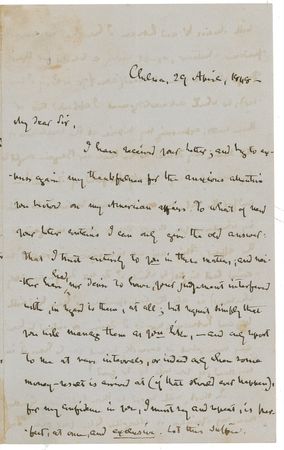 Chelsea, 29 April, 1848 —
My dear Sir,
I have received your letter; and beg to ex-
press again my thankfulness for the anxious attention
you bestow on my American affairs. To what of need
your letter contains I can only give the old answer:
That I trust entirely to you in these matters, and nei-
ther had, nor desire to have, your judgement interfered
with, in regard to them, at all; but request simply that
you will manage them as you like, — and only report
to me at rare intervals, or indeed only when some
money-result is arrived at (if that should ever happen);
for my confidence in you, I must say and repeat, is per-
fect, at once, and exclusive. Let this suffice.